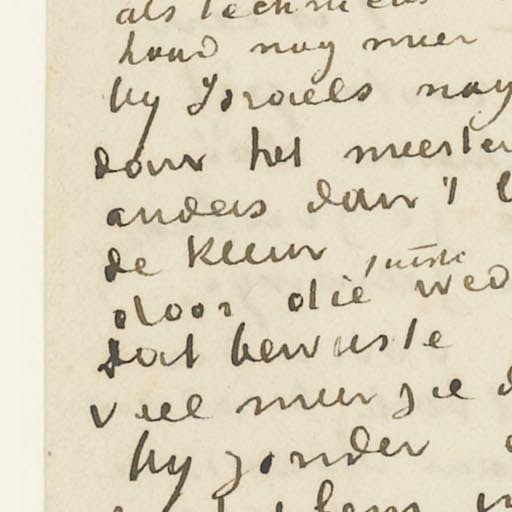 als technicus
houd nog meer
by Israels nog
door het meester
anders dan 't
de kleur juiste
door die wed
dat bewuste
veel meer zie d
byzonder